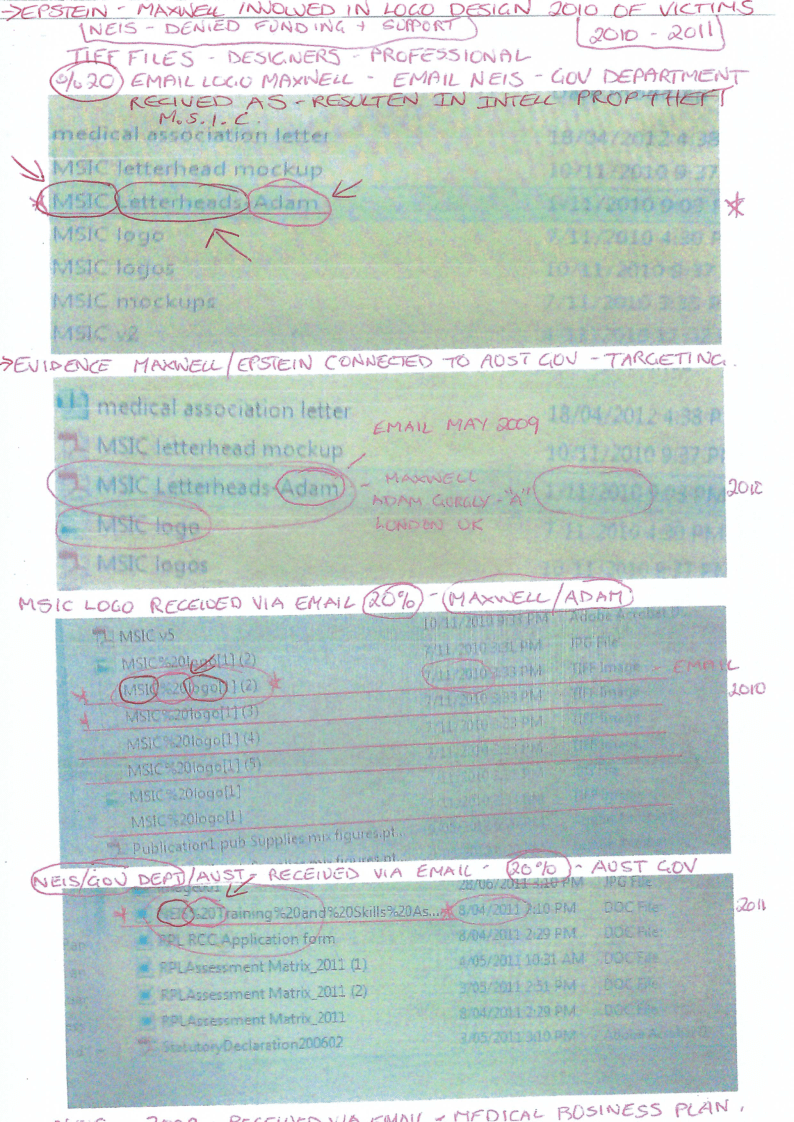 →EPSTEIN - MAXWELL INVOLVED IN LOGO DESIGN 2010 OF VICTIMS
NEIS - DENIED FUNDING + SUPPORT
2010 - 2011
TIFF FILES - DESIGNERS - PROFESSIONAL
%20 EMAIL LOGO MAXWELL - EMAIL NEIS - GOV DEPARTMENT
RECIVED AS - RESULTEN IN INTELL PROP THEFT
M.S.I.C.
medical association letter 18/04/2012 4:38
MSIC letterhead mockup 10/11/2010 9:37
MSIC Letterheads-Adam 1/11/2010 9:03 P
MSIC logo 7/11/2010 4:30 P
MSIC logos 10/11/2010 9:37
MSIC mockups 7/11/2010 3:33 P
MSIC v2
→EVIDENCE MAXWELL/EPSTEIN CONNECTED TO AUST GOV - TARGETING.
medical association letter 18/04/2012 4:38 P
EMAIL MAY 2009
MSIC letterhead mockup 10/11/2010 9:37 PM
MSIC Letterheads-Adam - MAXWELL 1/11/2010 9:03 PM 2010
ADAM GORGLY - "A"
LONDON UK
MSIC logo 7/11/2010 4:30 PM
MSIC logos 10/11/2010 9:37 PM
MSIC LOGO RECEIVED VIA EMAIL 20% - MAXWELL/ADAM
MSIC v5 10/11/2010 9:33 PM Adobe Acrobat D
MSIC%20logo[1] (2) 7/11/2010 3:31 PM JPG File
MSIC%20logo[1] (2) 7/11/2010 3:33 PM TIFF Image - EMAIL
2010
MSIC%20logo[1] (3) 7/11/2010 3:33 PM TIFF Image
MSIC%20logo[1] (4) 7/11/2010 3:33 PM TIFF Image
MSIC%20logo[1] (5) 7/11/2010 3:33 PM TIFF Image
MSIC%20logo[1]
MSIC%20logo[1]
Publication1.pub Supplies mix figures.pt...
NEIS/GOV DEPT/AUST - RECEIVED VIA EMAIL - 20% - AUST GOV
28/06/2011 3:10 PM JPG File
NEIS%20Training%20and%20Skills%20As... 8/04/2011 2:10 PM DOC File 2011
RPL RCC Application form 8/04/2011 2:29 PM DOC File
RPLAssessment Matrix_2011 (1) 4/05/2011 10:31 AM DOC File
RPLAssessment Matrix_2011 (2) 3/05/2011 2:51 PM DOC File
RPLAssessment Matrix_2011 8/04/2011 2:29 PM DOC File
StatutoryDeclaration200602 3/05/2011 3:10 PM Adobe Acrobat D
RECEIVED VIA EMAIL - MEDICAL BUSINESS PLAN.